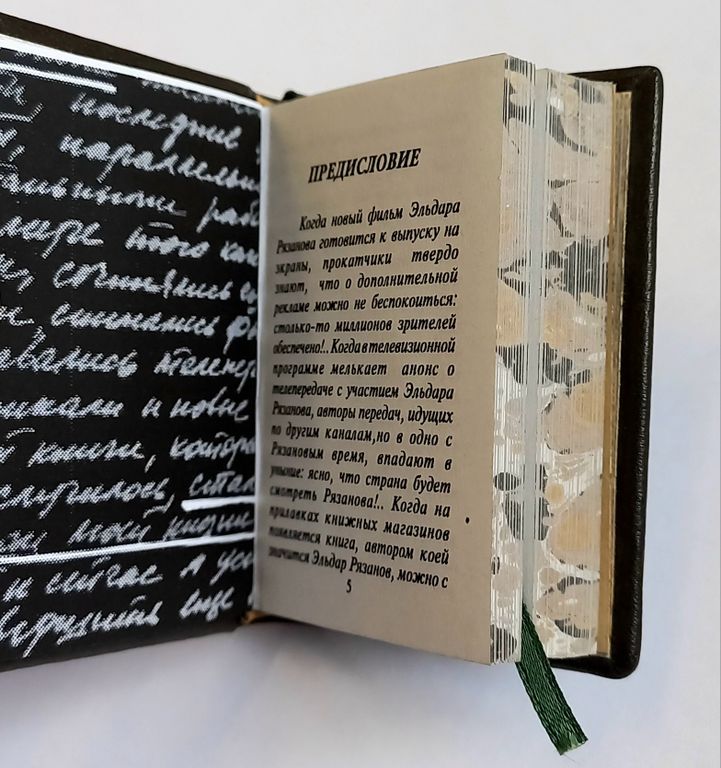 последние
параллельн
рабо
мире того как
сочинялись
снимались ф
вались телепер
и новые
й книги, котора
случилось, стал
моей жизни
и сейчас я
ПРЕДИСЛОВИЕ
Когда новый фильм Эльдара
Рязанова готовится к выпуску на
экраны, прокатчики твердо
знают, что о дополнительной
рекламе можно не беспокоиться:
столько-то миллионов зрителей
обеспечено!.. Когда в телевизионной
программе мелькает анонс о
телепередаче с участием Эльдара
Рязанова, авторы передач, идущих
по другим каналам,но в одно с
Рязановым время, впадают в
уныние: ясно, что страна будет
смотреть Рязанова!.. Когда на
прилавках книжных магазинов
появляется книга, автором коей
значится Эльдар Рязанов, можно с
5